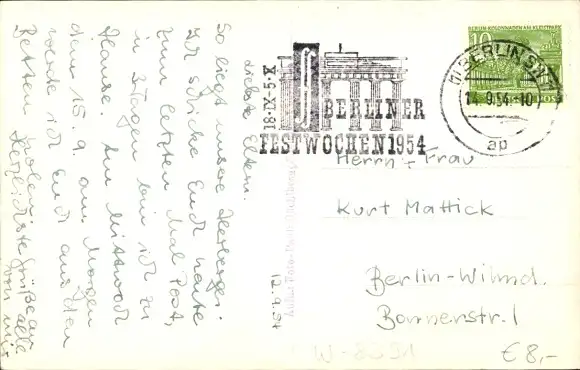 Liebste Eltern.
So liegt unsere Herberge.
Ich schicke Euch heute
zum letzten Mal Post,
in 3 Tagen bin ich zu
Hause. Am Mittwoch
dem 15.9. am Morgen
werde ich Euch aus den
Betten holen.
Herzlichste Grüße an alle
von
12.9.54
18·IX-5·X
BERLINER
FESTWOCHEN 1954
BERLIN SW
14.9.54.-10
ap
10
POST
Herrn + Frau
Kurt Mattick
Berlin-Wilmd.
Bonnerstr. 1
€ 8,-